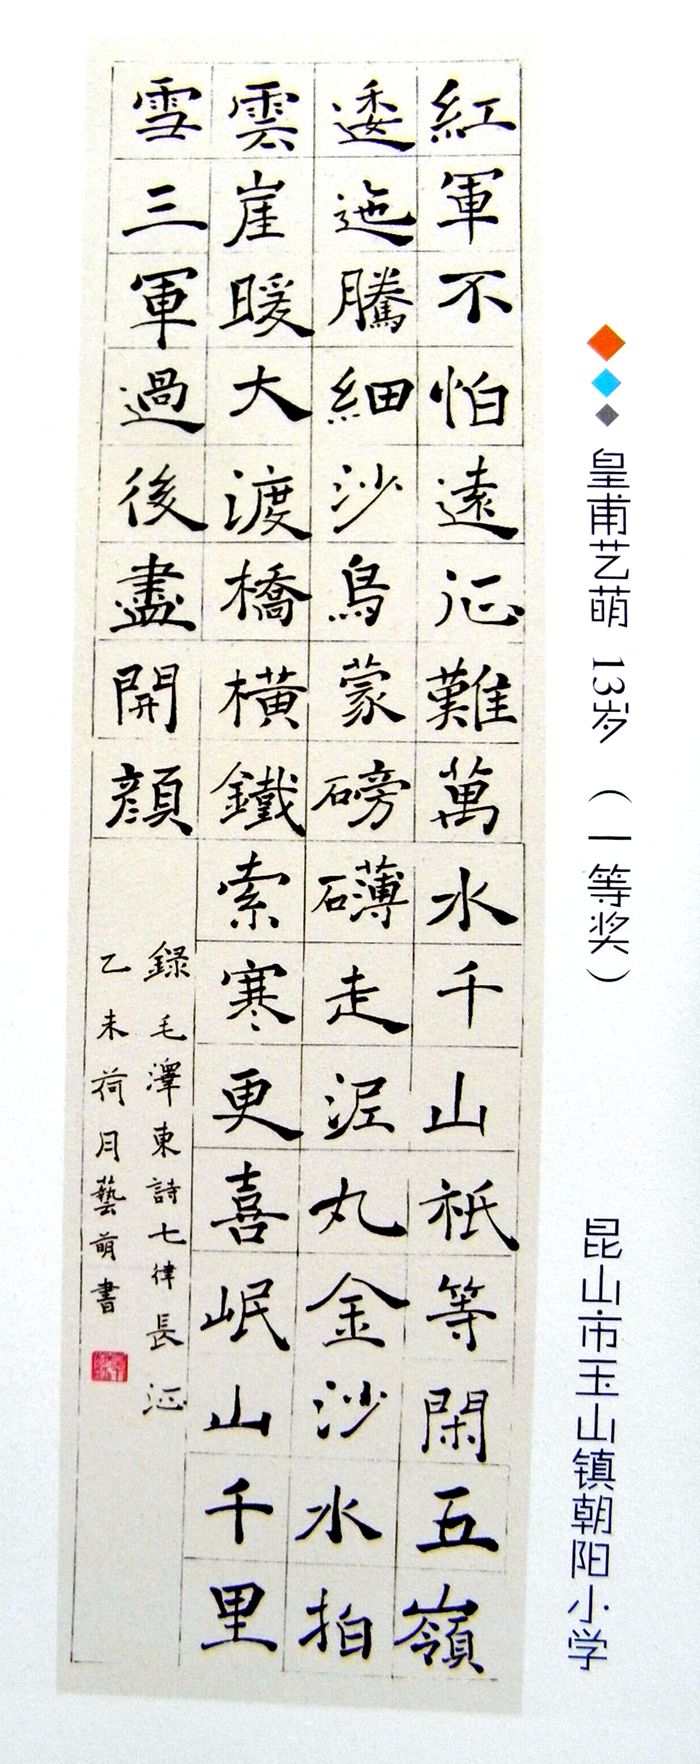 皇甫艺萌 13岁 （一等奖） 昆山市玉山镇朝阳小学
紅軍不怕遠征難萬水千山祇等閑五嶺
逶迤騰細沙鳥蒙磅礴走泥丸金沙水拍
雲崖暖大渡橋橫鐵索寒更喜岷山千里
雪三軍過後盡開顏
錄毛澤東詩七律長征
乙未荷月藝萌書